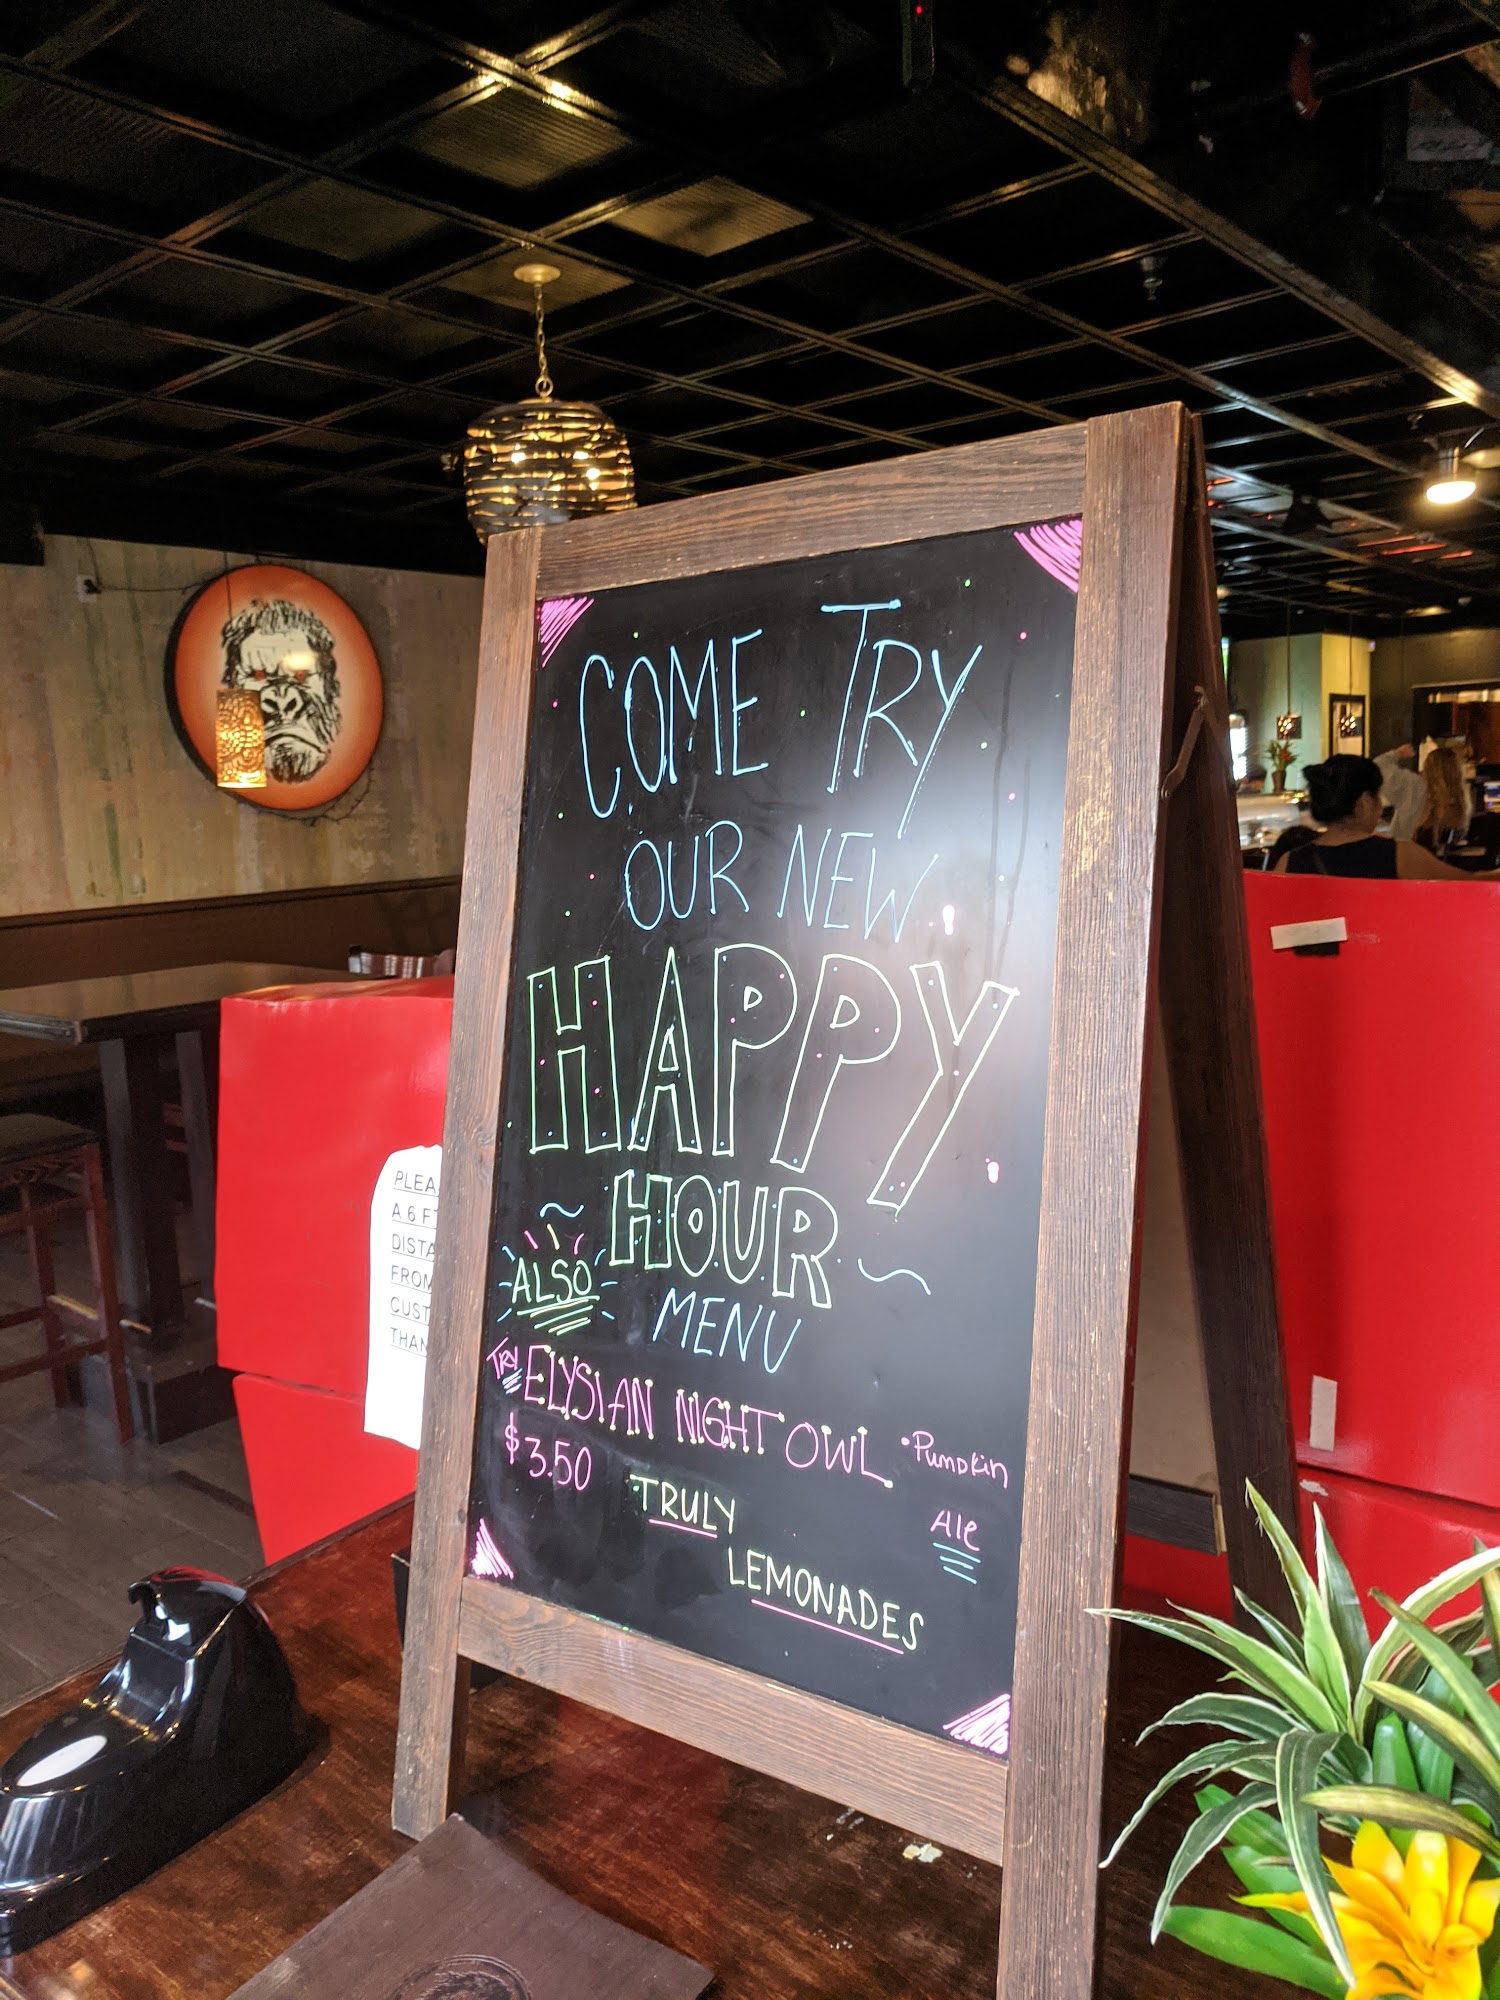 COME TRY
OUR NEW
HAPPY
HOUR
MENU
ALSO
TRY ELYSIAN NIGHT OWL • Pumpkin
Ale
$3.50
TRULY
LEMONADES
A 6
FROM